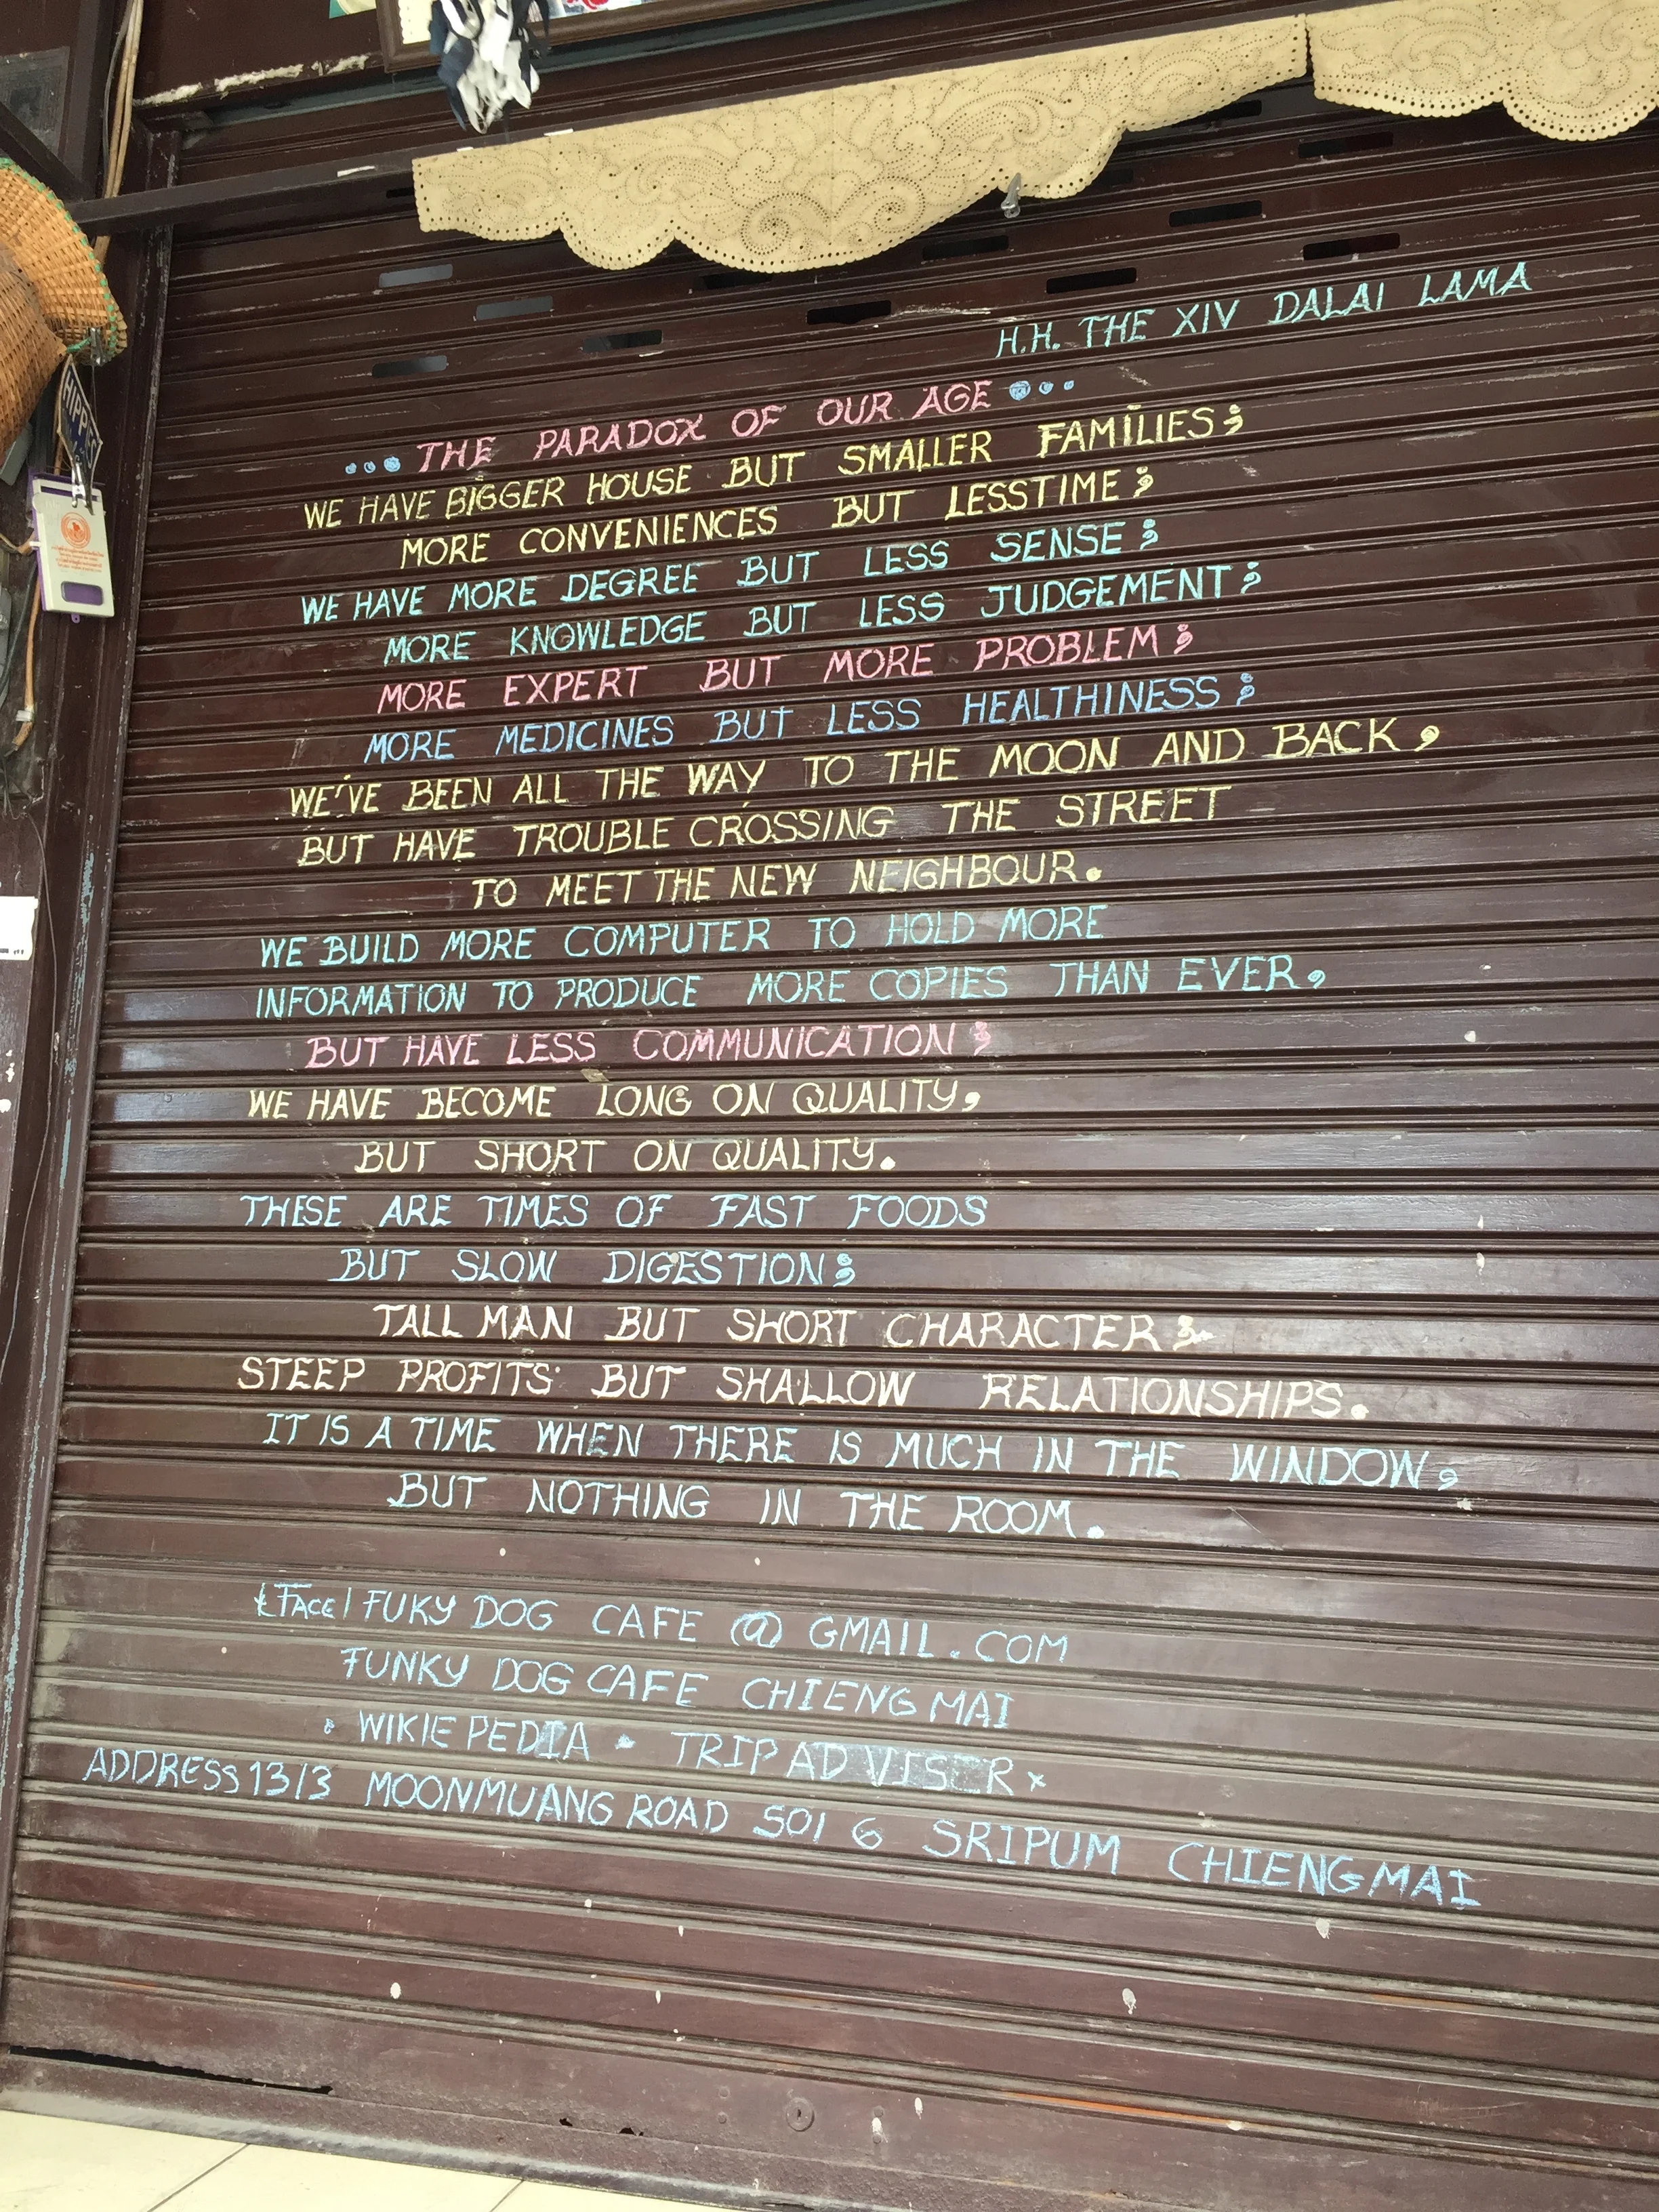 H.H. THE XIV DALAI LAMA
...THE PARADOX OF OUR AGE...
WE HAVE BIGGER HOUSE BUT SMALLER FAMILIES;
MORE CONVENIENCES BUT LESSTIME;
WE HAVE MORE DEGREE BUT LESS SENSE;
MORE KNOWLEDGE BUT LESS JUDGEMENT;
MORE EXPERT BUT MORE PROBLEM;
MORE MEDICINES BUT LESS HEALTHINESS;
WE'VE BEEN ALL THE WAY TO THE MOON AND BACK,
BUT HAVE TROUBLE CROSSING THE STREET
TO MEET THE NEW NEIGHBOUR.
WE BUILD MORE COMPUTER TO HOLD MORE
INFORMATION TO PRODUCE MORE COPIES THAN EVER,
BUT HAVE LESS COMMUNICATION;
WE HAVE BECOME LONG ON QUALITY,
BUT SHORT ON QUALITY.
THESE ARE TIMES OF FAST FOODS
BUT SLOW DIGESTION;
TALL MAN BUT SHORT CHARACTER;
STEEP PROFITS BUT SHALLOW RELATIONSHIPS.
IT IS A TIME WHEN THERE IS MUCH IN THE WINDOW,
BUT NOTHING IN THE ROOM.
FACE / FUKY DOG CAFE @ GMAIL.COM
FUNKY DOG CAFE CHIENG MAI
WIKIE PEDIA • TRIP AD VISER x
ADDRESS 13/3 MOONMUANG ROAD SOI 6 SRIPUM CHIENGMAI
HIPPIES